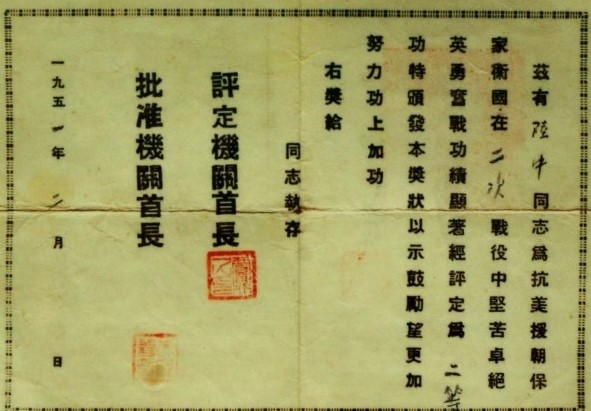 茲有陸中同志爲抗美援朝保
家衞國在二次戰役中堅苦卓絕
英勇奮戰功績顯著經評定爲二等
功特頒發本獎狀以示鼓勵望更加
努力功上加功
右獎給
同志執存
評定機關首長
批准機關首長
一九五一年二月 日